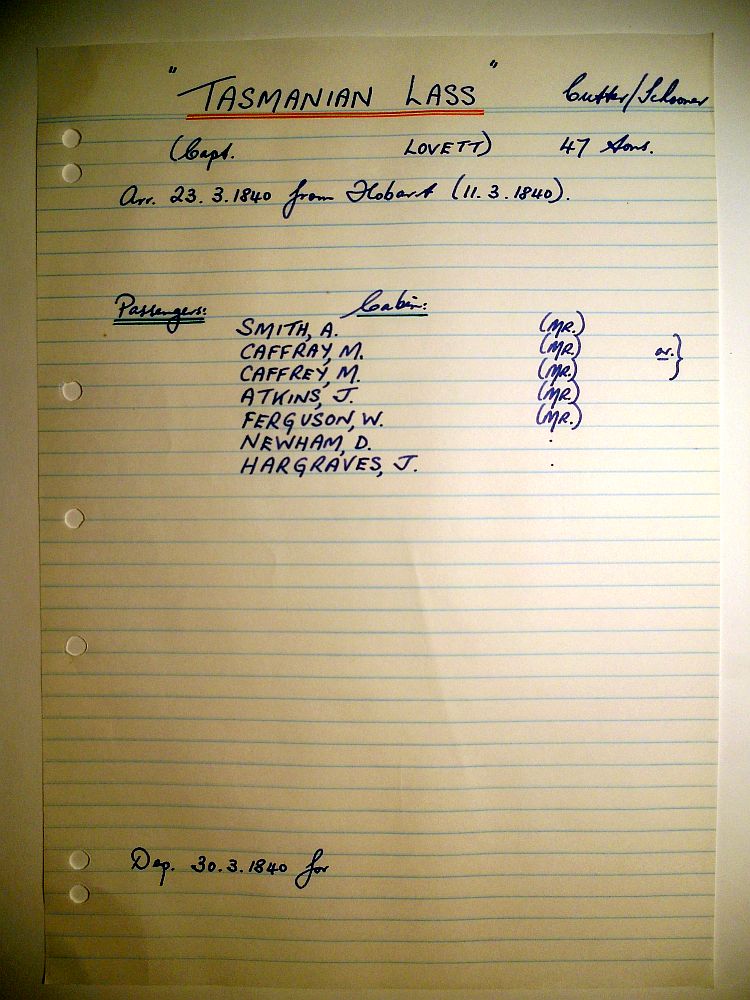 "TASMANIAN LASS" Cutter/Schooner
(Capt. LOVETT) 47 tons.
Arr. 23.3.1840 from Hobart (11.3.1840).
Passengers: Cabin:
SMITH, A. (MR.)
CAFFRAY, M. (MR.) or. }
CAFFREY, M. (MR.)
ATKINS, J. (MR.)
FERGUSON, W. (MR.)
NEWHAM, D. .
HARGRAVES, J. .
Dep. 30.3.1840 for